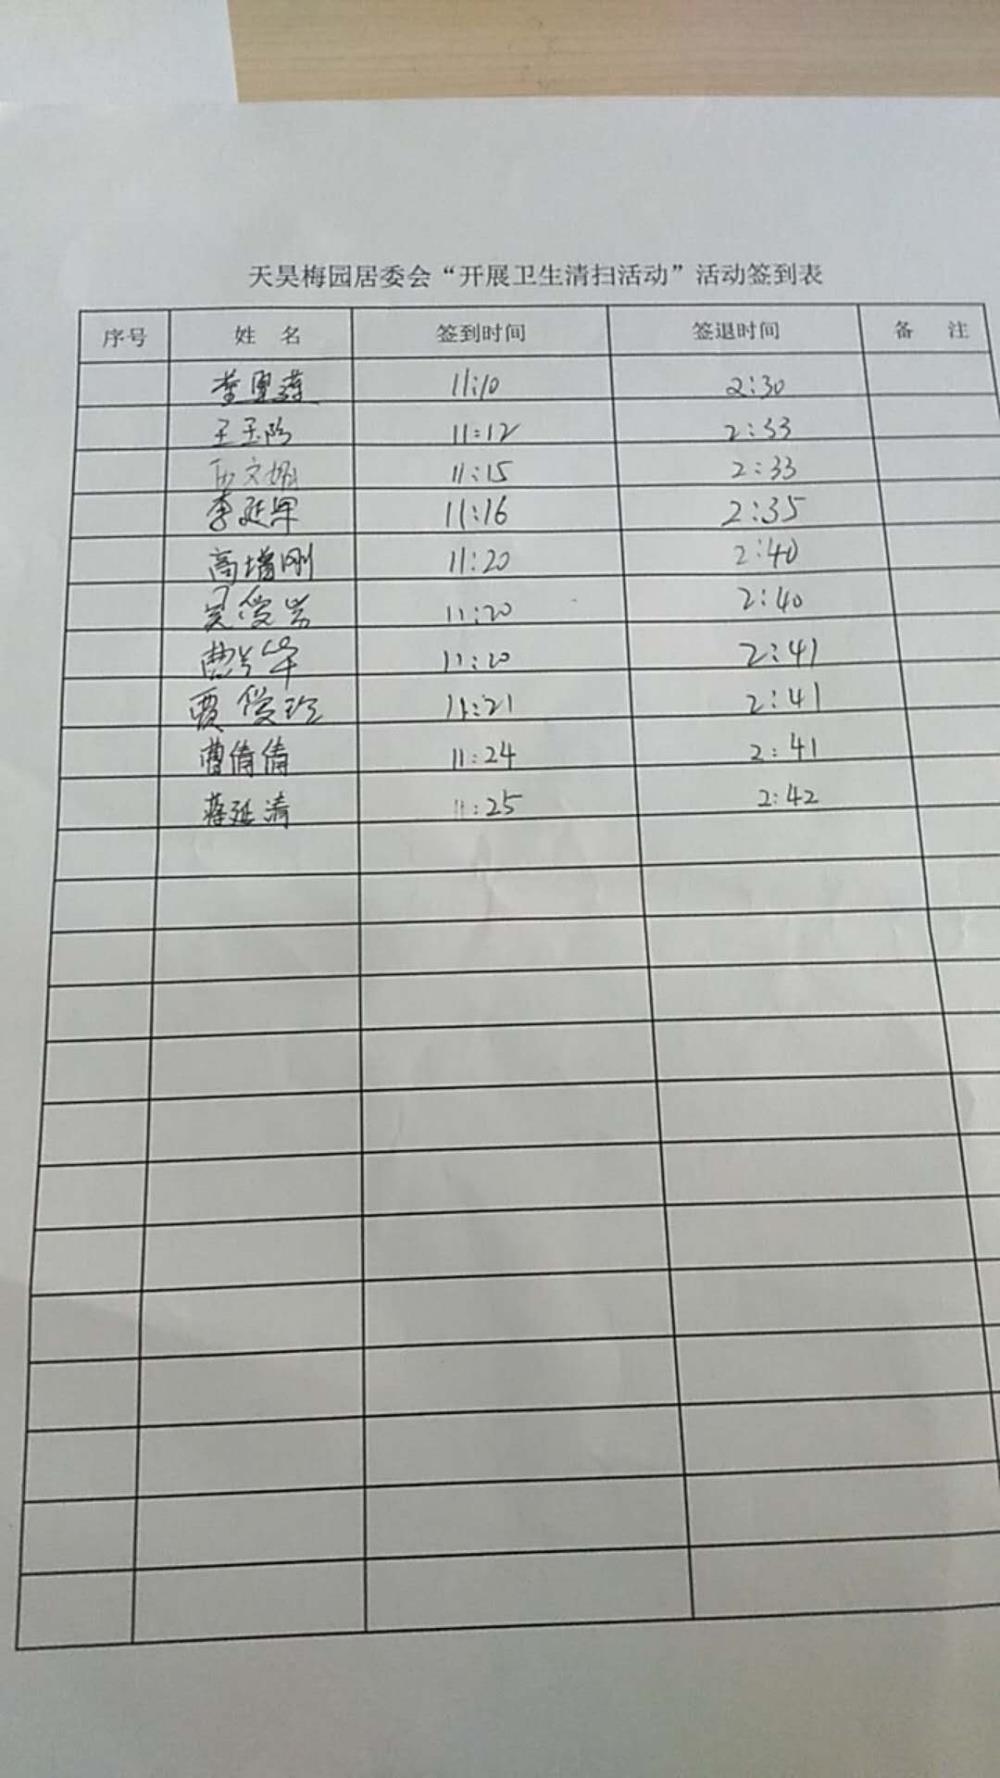 天昊梅园居委会“开展卫生清扫活动”活动签到表
序号 姓 名 签到时间 签退时间 备 注
11:10 2:30
11:12 2:33
11:15 2:33
李延军 11:16 2:35
高增刚 11:20 2:40
11:20 2:40
11:20 2:41
贾俊玲 11:21 2:41
曹倩倩 11:24 2:41
蒋延清 11:25 2:42